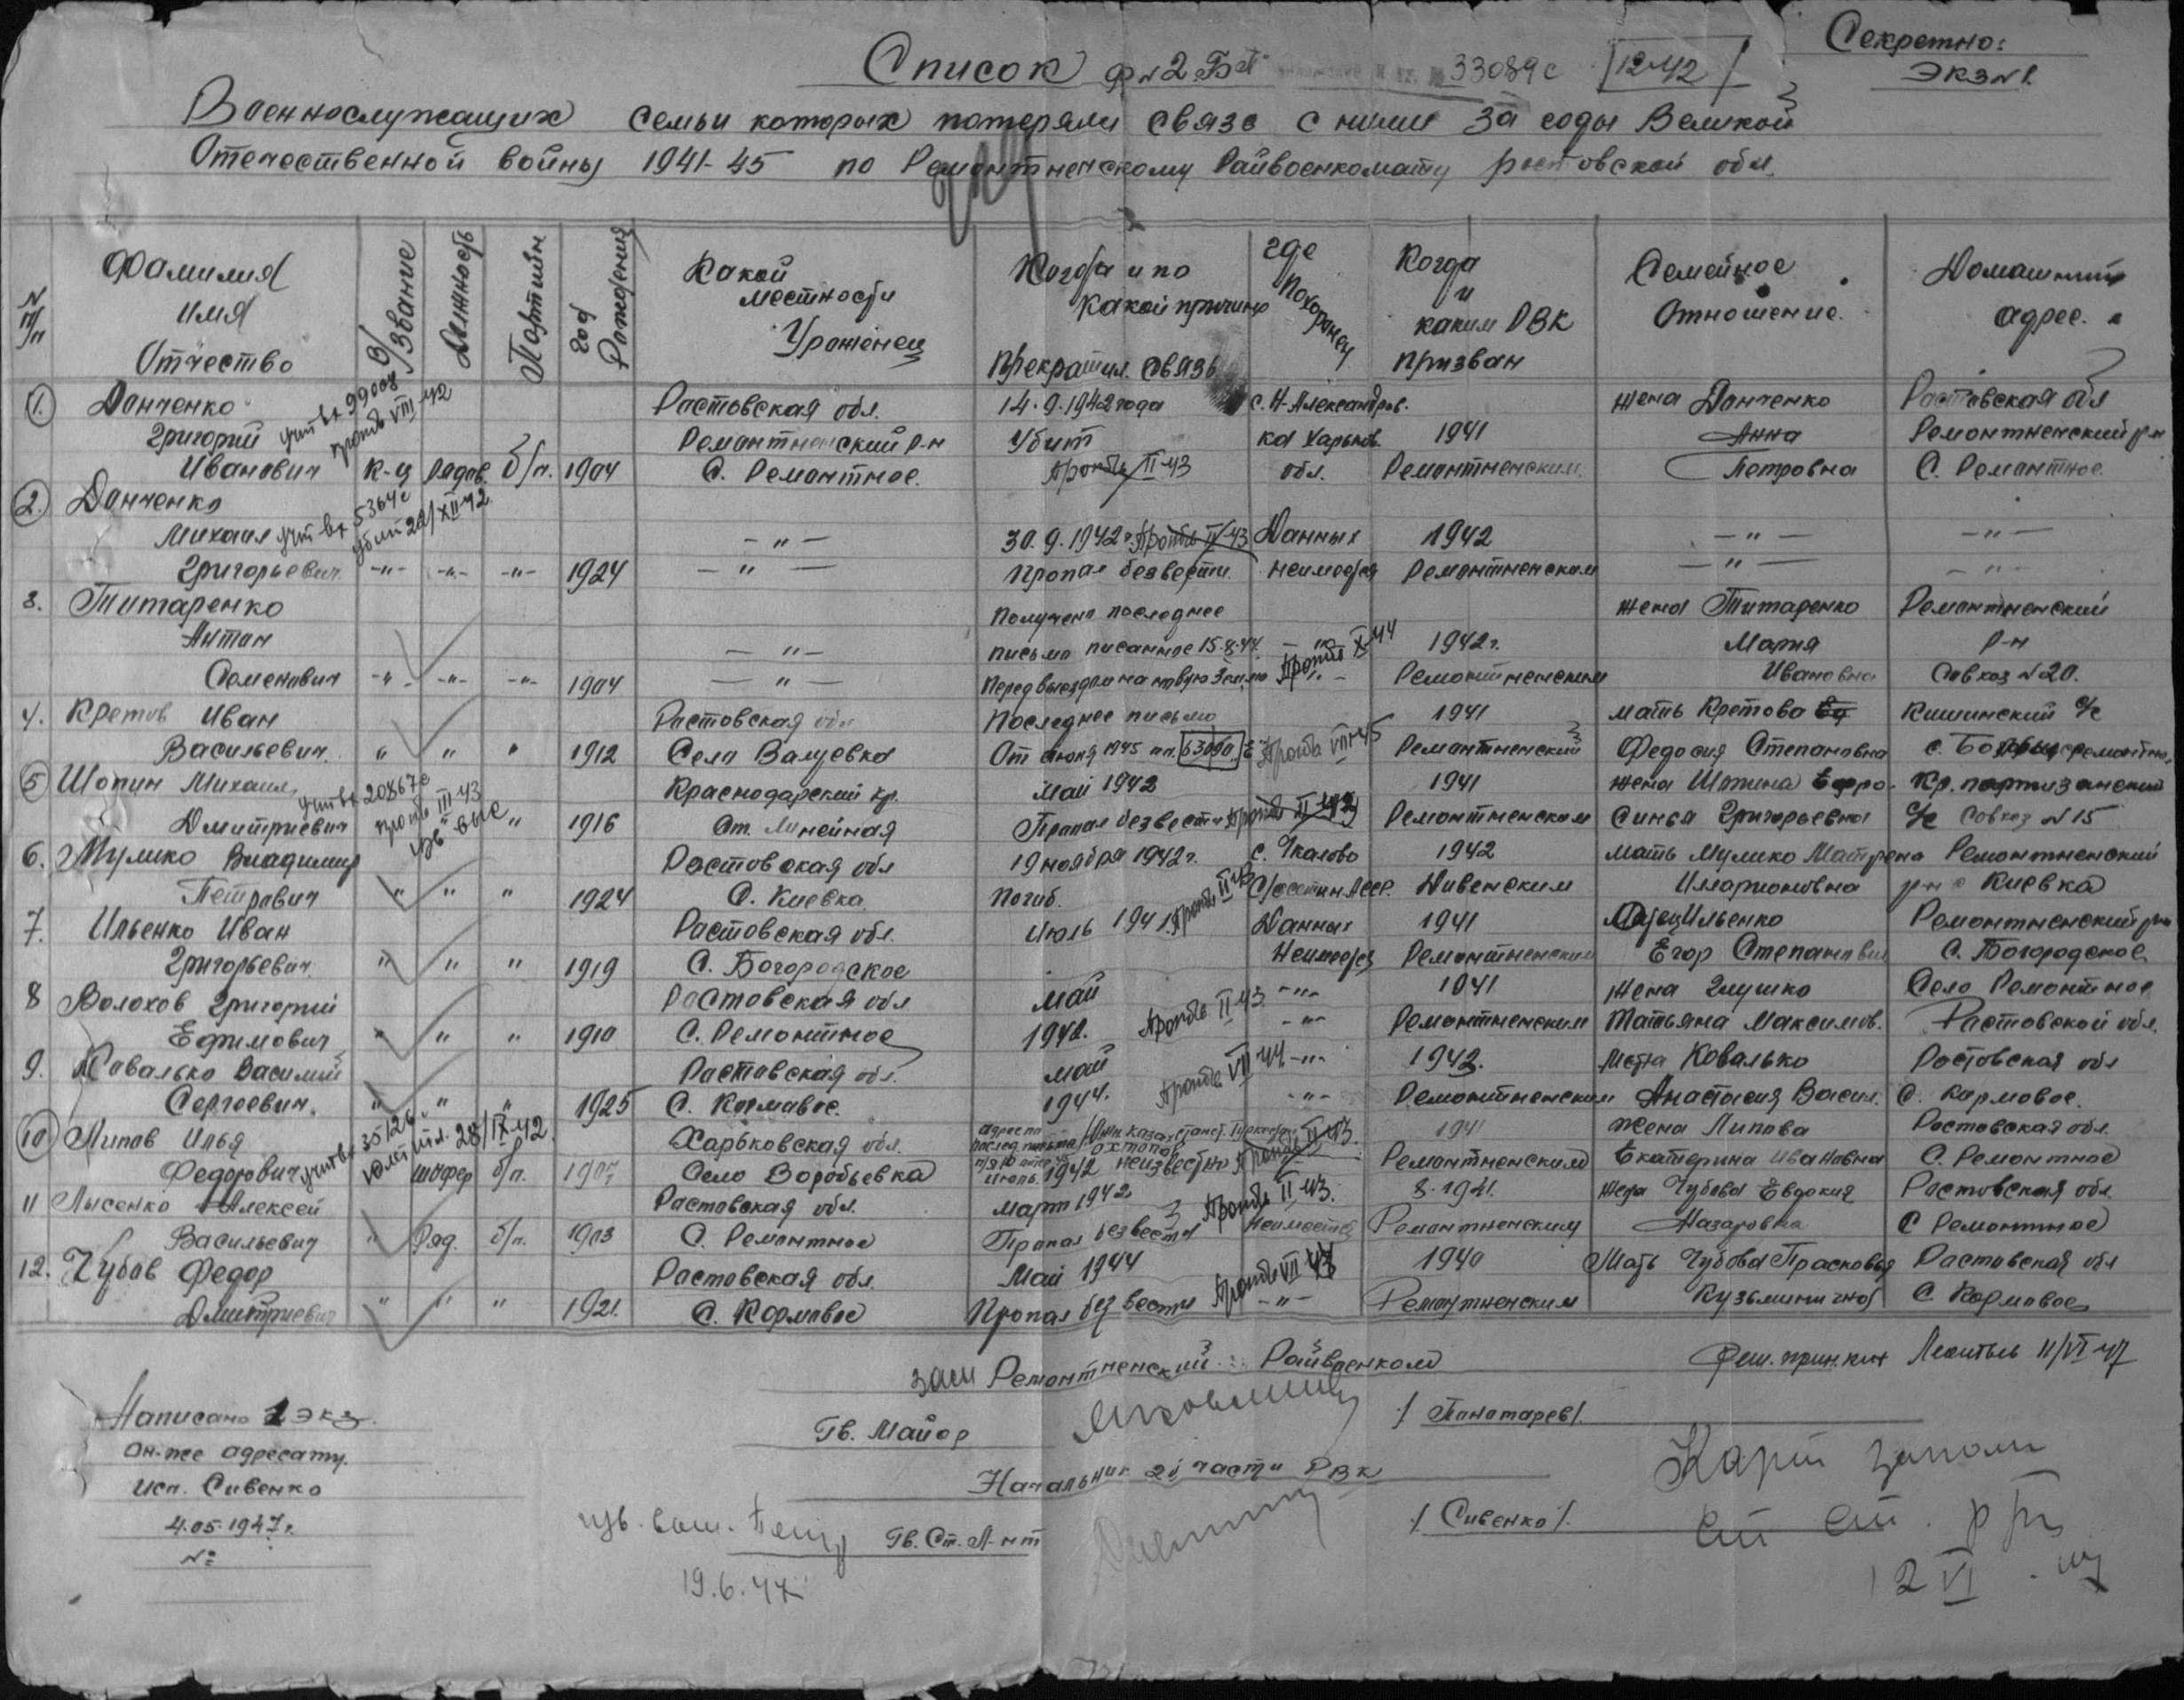 Секретно:
Экз №1.
Список ф №2 БП 33089с 12-42
Военнослужащих семьи которых потеряли связь с ними за годы Великой
Отечественной войны 1941-45 по Ремонтненскому Райвоенкомату Ростовской обл.
№ п/п
Фамилия Имя Отчество
В/Звание
Должность
Партийн
Год Рождения
Какой местности Уроженец
Когда и по какой причине прекратил. связь
где похоронен
Когда и каким РВК призван
Семейное Отношение.
Домашний адрес.
1. Данченко Ростовская обл. 14.9.1942 года с. Н-Александров. жена Данченко Ростовская обл
Григорий Ремонтненский р-н Убит ка Харьков. 1941 Анна Ремонтненский р-н
Иванович К-ц Рядов б/п. 1904 С. Ремонтное. обл. Ремонтненским Петровна С. Ремонтное.
учтен 99004 пропб VIII-42
пропб II-43
2. Данченко
Михаил -"- 30.9.1942г. пропб II-43 Данных 1942 -"- -"-
Григорьевич -"- -"- -"- 1924 -"- Пропал без вести неимеется Ремонтненским -"- -"-
5364с убит 22/XII-42
3. Титаренко Получено последнее жена Титаренко Ремонтненский
Антон -"- письмо писанное 15.8.44 -"- 1942г. Мария р-н
Семенович -"- -"- -"- 1904 -"- Перед выездом на новую Землю -"- Ремонтненским Ивановна Совхоз №20.
пропб X-44
4. Кретов Иван Ростовская обл Последнее письмо 1941 мать Кретова Кишинский с/с
Васильевич. " " " 1912 Село Валуевка От июня 1945 пп. 63090 пропб VII-45 Ремонтненский Федосия Степановна
5 Шопин Михаил Краснодарский кр. Май 1942 1941 жена Шопина Ефро- Кр. партизанский
Дмитриевич " 1916 Ст. Линейная Пропал без вести Ремонтненским синья Григорьевна с/с Совхоз №15
20867с пропб III-43
6. Мулико Владимир Ростовская обл 19 ноября 1942г. с. Чкалово 1942 мать Мулико Матрена Ремонтненский
Петрович " " " 1924 С. Киевка Погиб. Дивенским Илларионовна р-н с Киевка
пропб II-43
7. Ильенко Иван Ростовская обл. Июль 1941. Данных 1941 Отец Ильенко Ремонтненский р-н
Григорьевич " " " 1919 С. Богородское Неимеется Ремонтненским Егор Степанович С. Богородское
8 Волохов Григорий Ростовская обл Май -"- 1941 жена Глушко Село Ремонтное
Ефимович " " " 1910 С. Ремонтное 1942. пропб II-43 -"- Ремонтненским Татьяна Максимов. Ростовской обл.
9. Ковалько Василий Ростовская обл. май -"- 1942. Мать Ковалько Ростовская обл
Сергеевич. " " " 1925 С. Кормовое. 1944. пропб VII-44 -"- Ремонтненским Анастасия Васил. С. Кормовое.
10 Липов Илья Харьковская обл. 1941 жена Липова Ростовская обл.
Федорович шофер б/п. 1907 Село Воробьевка июль. 1942 неизвестно Ремонтненским Екатерина Ивановна С. Ремонтное
35126 28/IX-42
11 Лысенко Алексей Ростовская обл. март 1942г пропб II-43. 8.1941. жена Чубова Евдокия Ростовская обл.
Васильевич " Ряд. б/п. 1903 С. Ремонтное Пропал без вести неимеется Ремонтненским Назаровна С Ремонтное
12. Чубов Федор Ростовская обл. Май 1944 1940 Мать Чубова Прасковья Ростовская обл
Дмитриевич " " " 1921. С. Кормовое Пропал без вести -"- Ремонтненским Кузьминична С Кормовое
Зам Ремонтненский Райвоенком
Гв. Майор /Понамарев/.
Начальник 2й части РВК
Гв. Ст. Л-нт /Сивенко/.
Написано 1 экз.
Он-же адресату.
Исп. Сивенко
4.05.1947г.
№
19.6.47
11/VI-47
Карт
12 VI